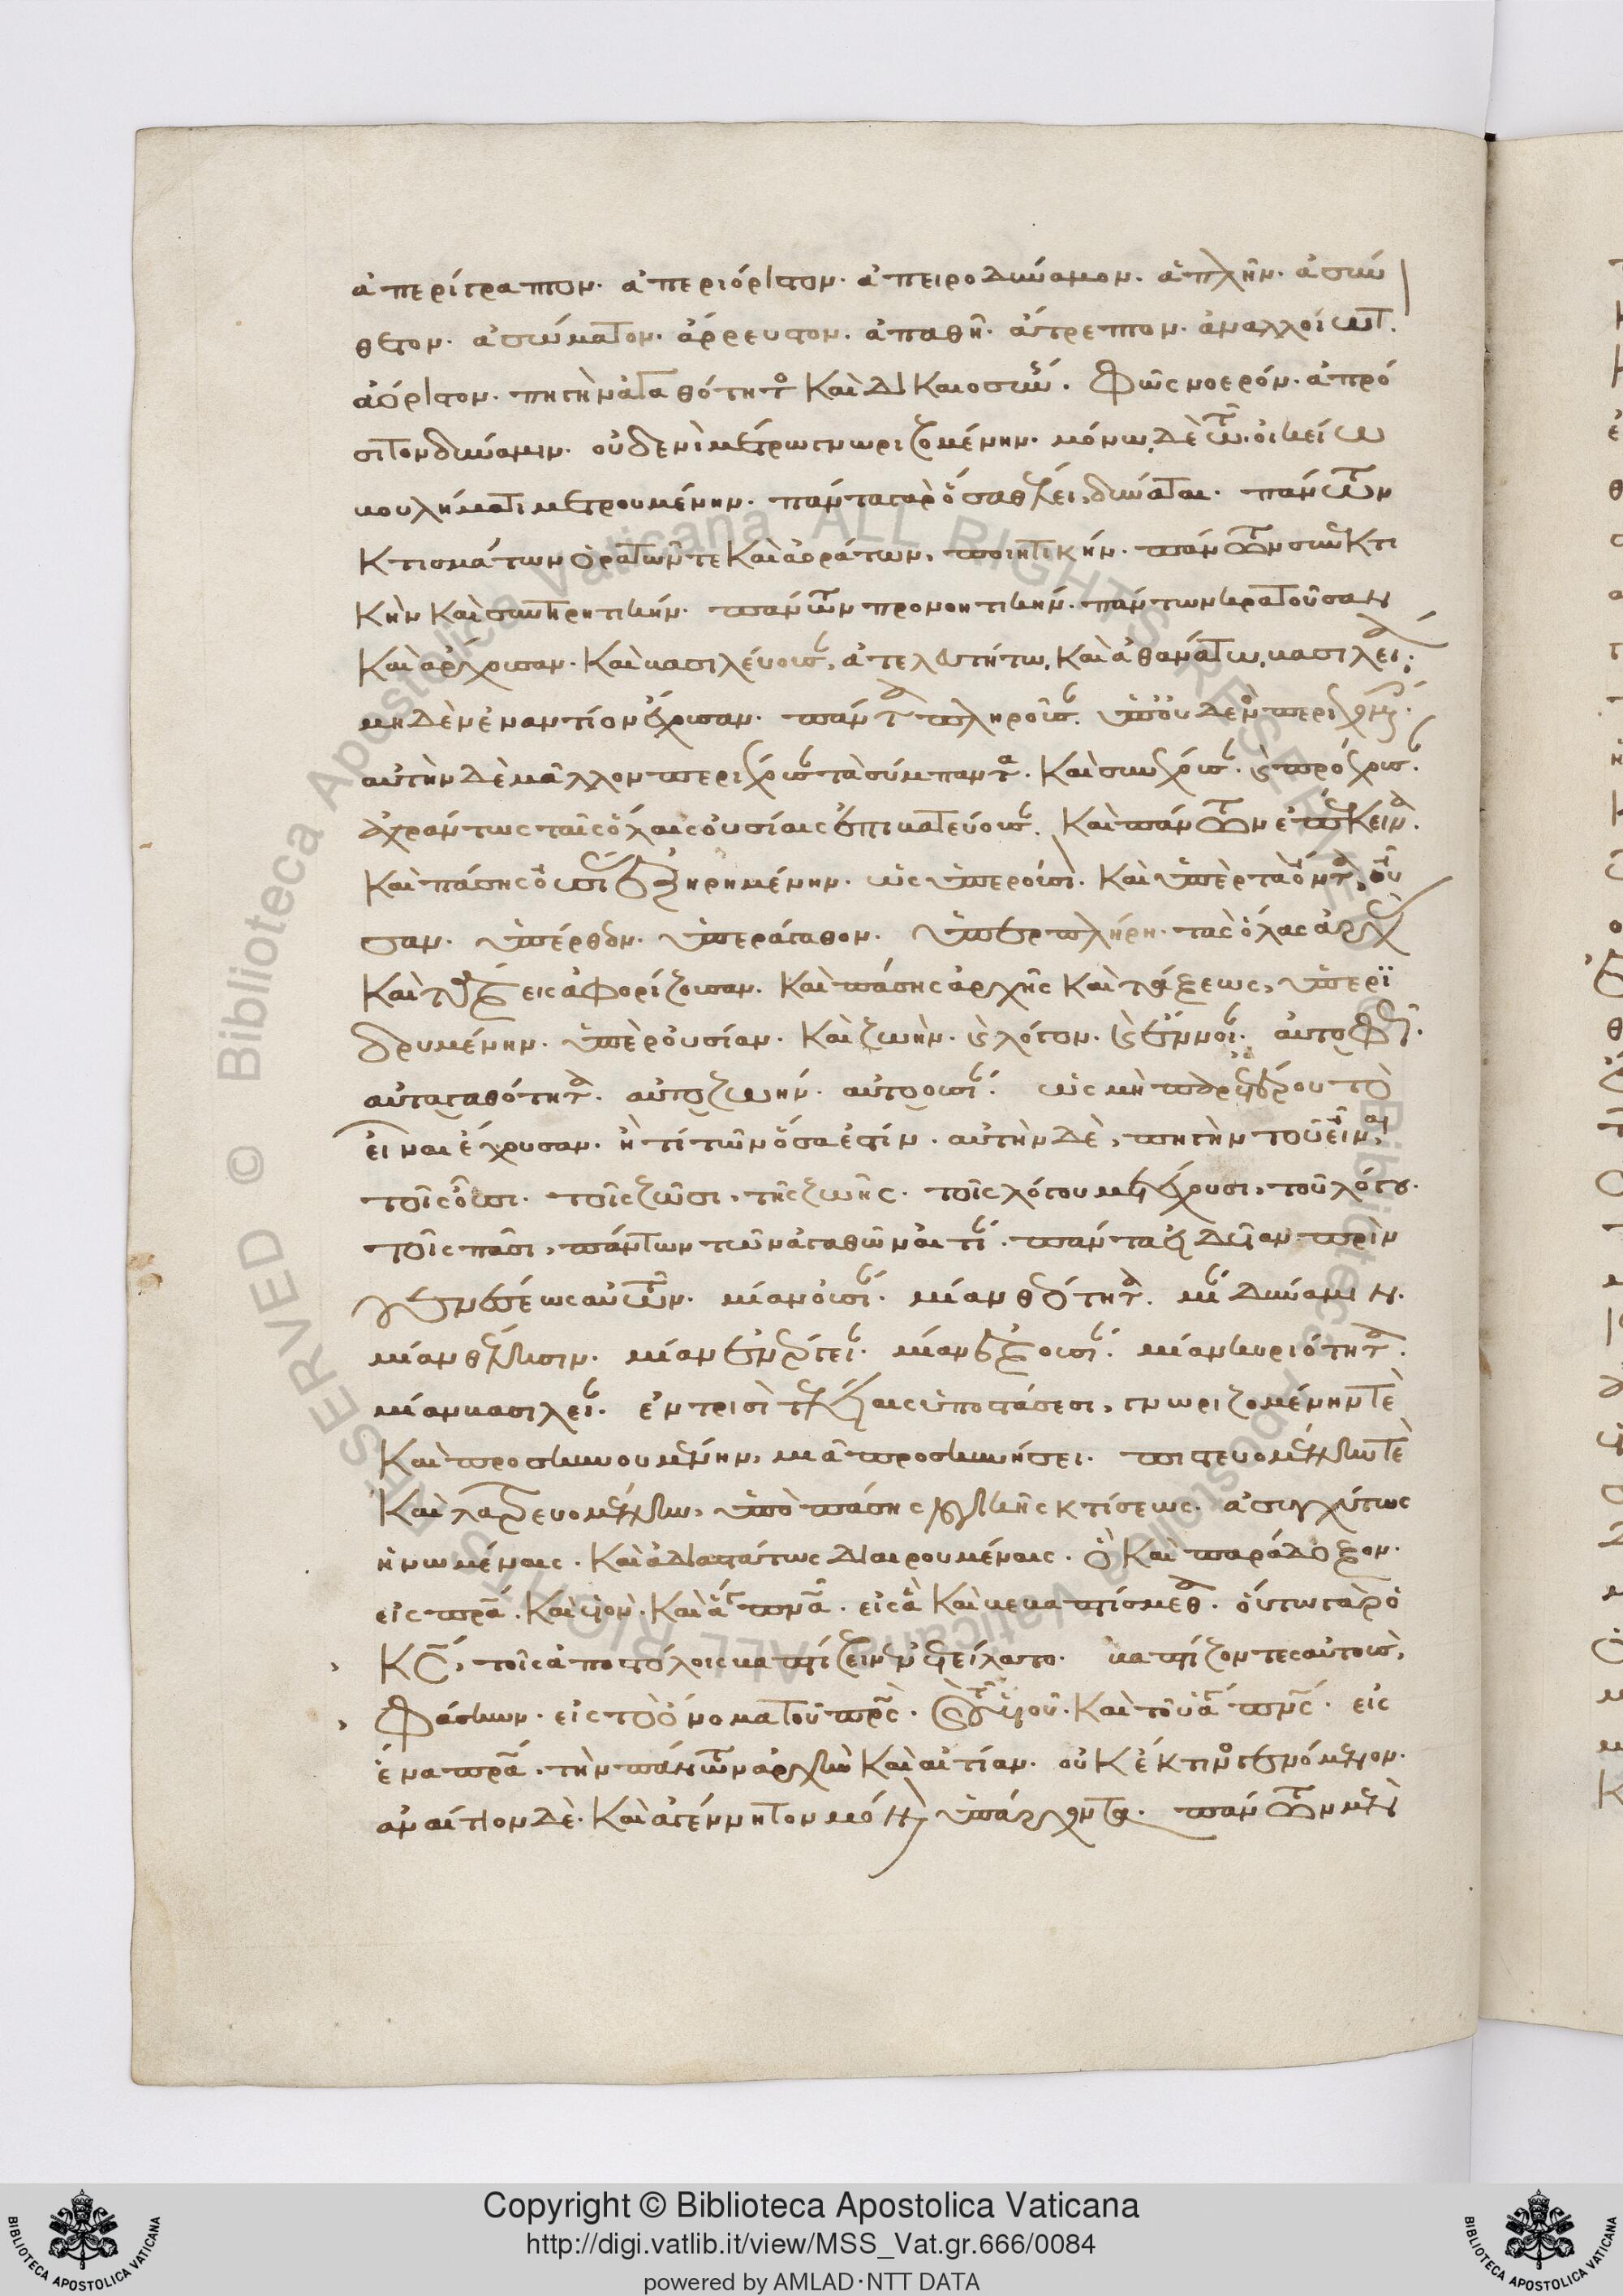 ἀπερίγραπτον· ἀπεριόριστον· ἀπειροδύναμον· ἁπλῆν· ἀσύν
θετον· ἀσώματον· ἄρρευστον· ἀπαθῆ· ἄτρεπτον· ἀναλλοίωτ
ἀόριστον· πηγὴν ἀγαθότητο καὶ δικαιοσύν· φῶς νοερόν· ἀπρό
σιτον δύναμιν· οὐδενὶ μέτρω γνωριζομένην· μόνω δὲ τῶ οἰκείω
βουλήματι μετρουμένην· πάντα γὰρ ὅσα θέλει, δύναται· πάντων
κτισμάτων ὁρατῶν τε καὶ ἀοράτων, ποιητικήν· πάντων συνεκτι
κὴν καὶ συντηρητικήν· πάντων προνοητικήν· πάντων κρατοῦσαν
καὶ ἄρχουσαν· καὶ βασιλεύουσαν, ἀτελευτήτω, καὶ ἀθανάτω, βασιλεία·
μηδὲν ἐναντίον ἔχουσαν· πάντα πληροῦσαν· ὑπ' οὐδενὸς περιεχομένην·
αὐτὴν δὲ μᾶλλον περιέχουσαν τὰ σύμπαντα· καὶ συνέχουσαν· καὶ προέχουσαν·
ἀχράντως ταῖς ὅλαις οὐσίαις ἐπιβατεύουσαν· καὶ πάντων ἐπέκεινα·
καὶ πάσης οὐσίας ἐξηρημένην· ὡς ὑπερούσιον· καὶ ὑπὲρ τὰ ὄντα, οὖ
σαν· ὑπέρθεον· ὑπεράγαθον· ὑπερπλήρη· τὰς ὅλας ἀρχὰς
καὶ τάξεις ἀφορίζουσαν· καὶ πάσης ἀρχῆς καὶ τάξεως, ὑπερϊ
δρυμένην· ὑπὲρ οὐσίαν· καὶ ζωὴν· καὶ λόγον· καὶ ἔννοιαν· αὐτοφῶς·
αὐταγαθότητα· αὐτοζωήν· αὐτοουσίαν· ὡς μὴ παρ' ἑτέρου τὸ
εἶναι ἔχουσαν· ἤ τι τῶν ὅσα ἐστίν· αὐτὴν δὲ, πηγὴν τοῦ εἶναι
τοῖς οὖσι· τοῖς ζῶσι, τῆς ζωῆς· τοῖς λόγου μετέχουσι, τοῦ λόγου·
τοῖς πᾶσι, πάντων τῶν ἀγαθῶν αἰτίαν· πάντα εἰδυῖαν πρὶν
γενέσεως αὐτῶν· μίαν οὐσίαν· μίαν θεότητα· μίαν δύναμιν·
μίαν θέλησιν· μίαν ἐνέργειαν· μίαν ἐξουσίαν· μίαν κυριότητα·
μίαν βασιλείαν· ἐν τρισὶ τελείαις ὑποστάσεσι, γνωριζομένην τὲ
καὶ προσκυνουμένην, μιᾶ προσκυνήσει· πιστευομένην τὲ
καὶ λατρευομένην, ὑπὸ πάσης λογικῆς κτίσεως· ἀσυγχύτως
ἡνωμέναις· καὶ ἀδιαστάτως διαιρουμέναις· ὃ καὶ παράδοξον·
εἰς πρα· καὶ υἱὸν· καὶ ἅγιον πνα· εἰς ἃ καὶ βεβαπτίσμεθα· οὕτω γὰρ ὁ
κς, τοῖς ἀποστόλοις βαπτίζειν ἐνετείλατο· βαπτίζοντες αὐτοὺς,
φάσκων· εἰς τὸ ὄνομα τοῦ πρς· καὶ τοῦ υἱοῦ· καὶ τοῦ ἁγίου πνς· εἰς
ἕνα πρα· τὴν πάντων ἀρχὴν καὶ αἰτίαν· οὐκ ἔκ τινος γενόμενον·
ἀναίτιον δὲ· καὶ ἀγέννητον μόνον ὑπάρχοντα· πάντων μὲν
Copyright © Biblioteca Apostolica Vaticana
http://digi.vatlib.it/view/MSS_Vat.gr.666/0084
powered by AMLAD·NTT DATA
BIBLIOTECA APOSTOLICA VATICANA
BIBLIOTECA APOSTOLICA VATICANA